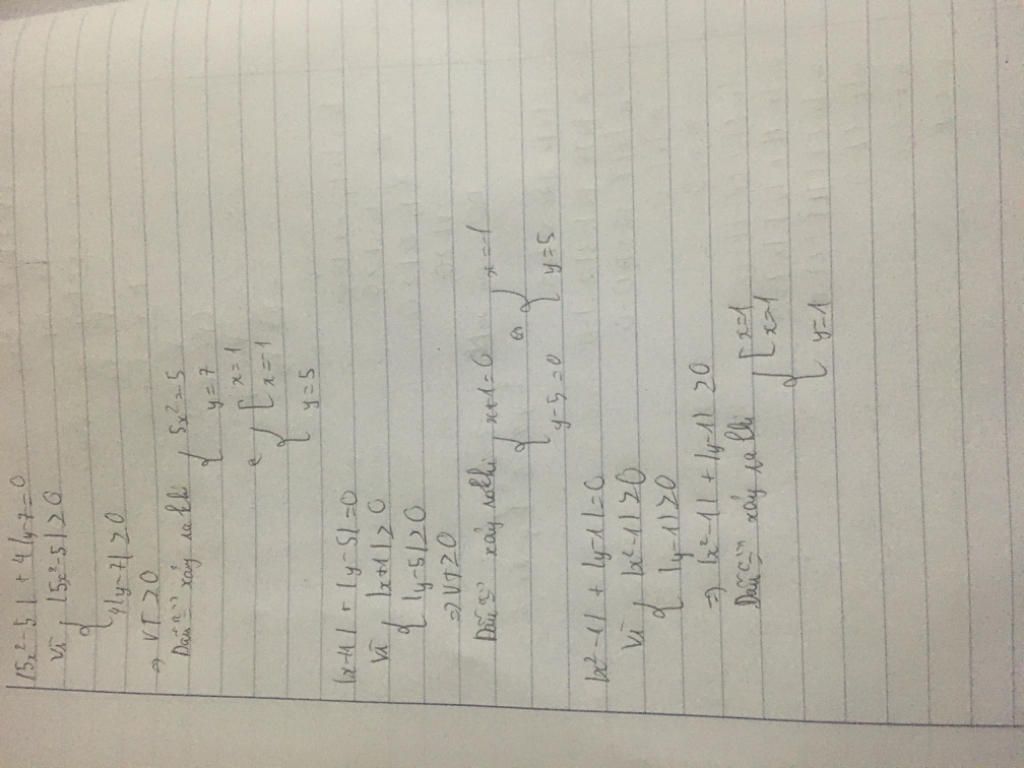 |5x²-5| + 4|y-7=0
Vì { |5x²-5| ≥ 0
4|y-7| ≥ 0
⇒ VT ≥ 0
Dấu "=" xảy ra khi { 5x²=5
y=7
{ [ x=1
x=-1
y=5
|x+1| + |y-5|=0
Vì { |x+1| ≥ 0
|y-5| ≥ 0
⇒ VT ≥ 0
Dấu "=" xảy ra khi { x+1=0
y-5=0
⇔ { x=-1
y=5
|x²-1| + |y-1|=0
Vì { |x²-1| ≥ 0
|y-1| ≥ 0
⇒ |x²-1| + |y-1| ≥ 0
Dấu "=" xảy ra khi { [ x=1
x=-1
y=1